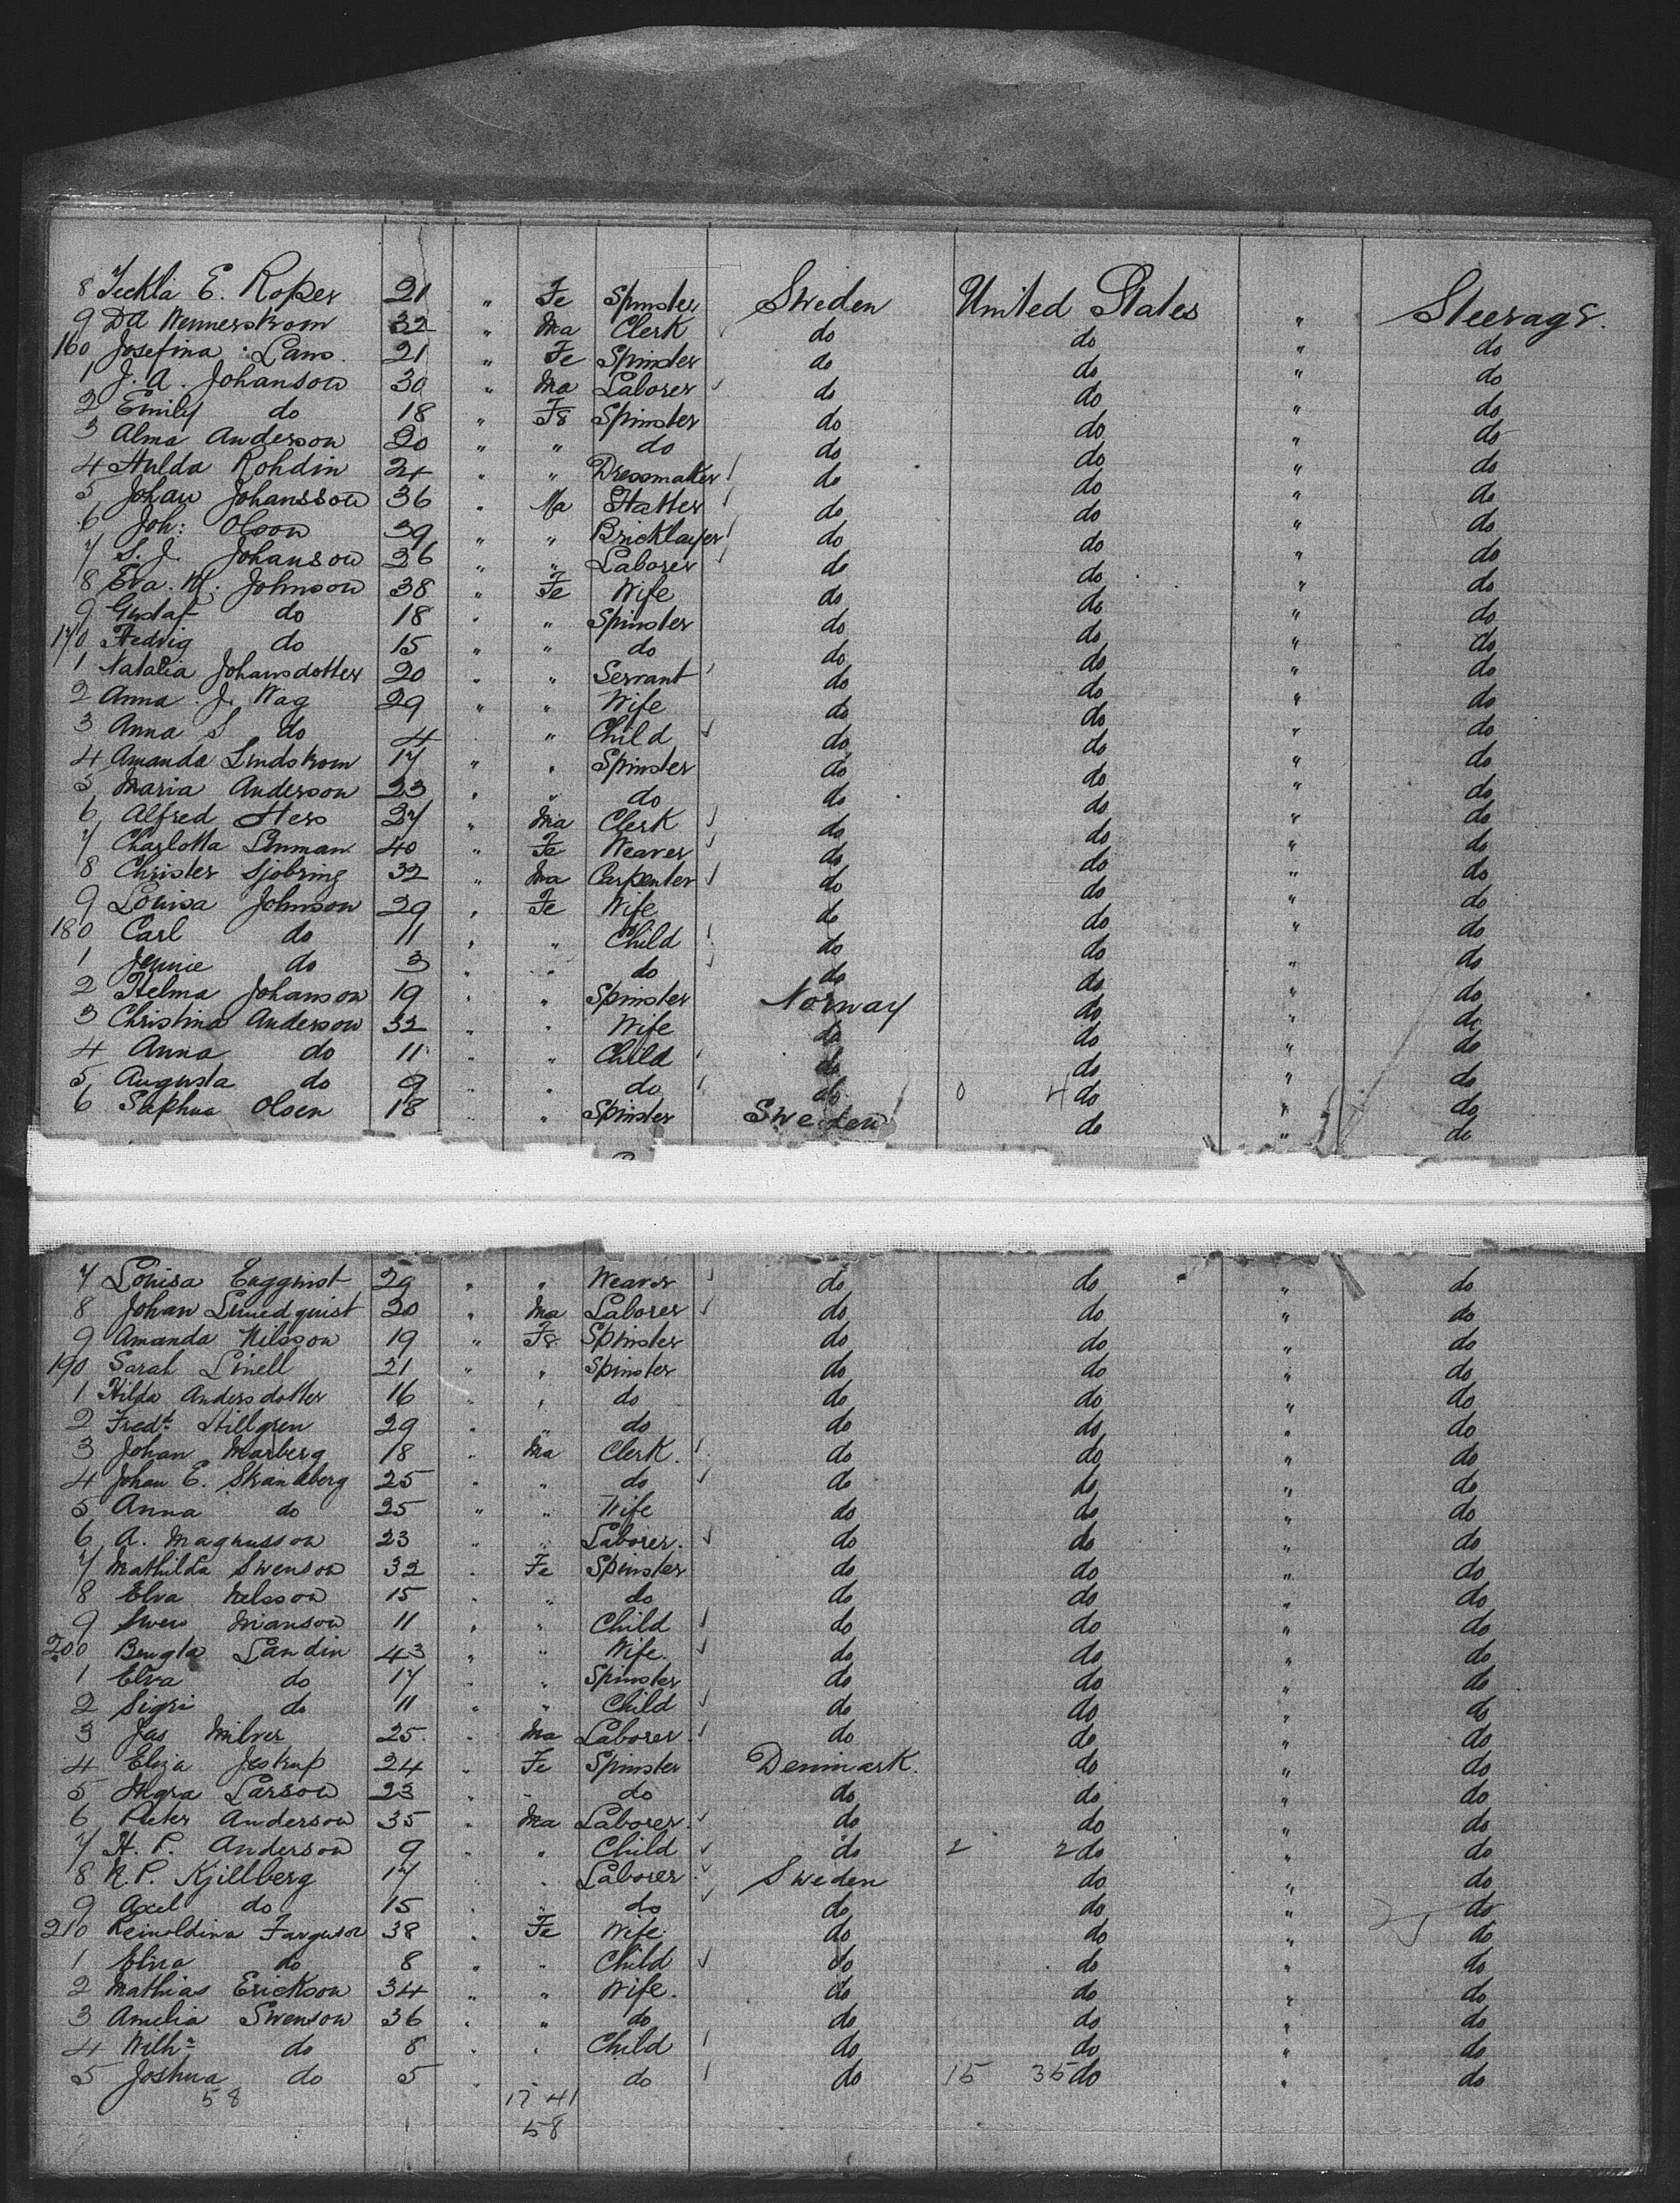 8 Teckla E. Roper 21 " Fe Spinster Sweden United States " Steerage.
9 Da Wennerstrom 32 " Ma Clerk do do " do
160 Josefina Lans. 21 " Fe Spinster do do " do
1 J. A. Johanson 30 " Ma Laborer do do " do
2 Emily do 18 " Fe Spinster do do " do
3 Alma Anderson 20 " " do do do " do
4 Hulda Rohdin 24 " " Dressmaker do do " do
5 Johan Johansson 36 " Ma Hatter do do " do
6 Joh: Olson 39 " " Bricklayer do do " do
7 S. J. Johanson 36 " " Laborer do do " do
8 Eva. M. Johnson 38 " Fe Wife do do " do
9 Gustaf do 18 " " Spinster do do " do
170 Hedvig do 15 " " do do do " do
1 Natalia Johansdotter 20 " " Servant do do " do
2 Anna J. Wag 29 " " Wife do do " do
3 Anna S do 4 " Child do do " do
4 Amanda Lindstrom 17 " " Spinster do do " do
5 Maria Anderson 23 " " do do do " do
6 Alfred Hess 27 " Ma Clerk do do " do
7 Charlotta Linman 40 " Fe Weaver do do " do
8 Christer Sjobring 32 " Ma Carpenter do do " do
9 Louisa Johnson 29 " Fe Wife do do " do
180 Carl do 11 " " Child do do " do
1 Jennie do 3 " " do do do " do
2 Helma Johanson 19 " " Spinster Norway do " do
3 Christina Anderson 32 " " Wife do do " do
4 Anna do 11 " " Child do do " do
5 Augusta do 9 " " do do 0 4 do " do
6 Olsen 18 " " Spinster Sweden do " do
7 Louisa Engquist 29 " " Weaver do do " do
8 Johan Lundquist 20 " Ma Laborer do do " do
9 Amanda Nilsson 19 " Fe Spinster do do " do
190 Sarah Linell 21 " " Spinster do do " do
1 Hilda Andersdotter 16 " " do do do " do
2 Fredk Hillgren 29 " " do do do " do
3 Johan Marberg 18 " Ma Clerk. do do " do
4 Johan E. Strandberg 25 " " do do do " do
5 Anna do 25 " " Wife do do " do
6 A. Magnusson 23 " " Laborer. do do " do
7 Mathilda Swenson 32 " Fe Spinster do do " do
8 Elva Nelsson 15 " " do do do " do
9 Swen Manson 11 " " Child do do " do
200 Bengta Landin 43 " " Wife. do do " do
1 Elva do 17 " " Spinster do do " do
2 Sigri do 11 " " Child do do " do
3 Jas Milver 25. " Ma Laborer do do " do
4 Eliza Jestrup 24 " Fe Spinster Denmark. do " do
5 Larson 23 " " do do do " do
6 Peter Anderson 35 " Ma Laborer. do do " do
7 H. P. Anderson 9 " " Child do 2 2 do " do
8 N. P. Kjillberg 17 " " Laborer Sweden do " do
9 Axel do 15 " " do do do " do
210 Reinoldina Farguson 38 " Fe Wife do do " do
1 Elna do 8 " " Child do do " do
2 Mathias Erickson 34 " " Wife. do do " do
3 Amelia Swenson 36 " " do do do " do
4 Wilhn do 8 " " Child do do " do
5 Joshua do 5 " " do do 15 35 do " do
58 17 41
58